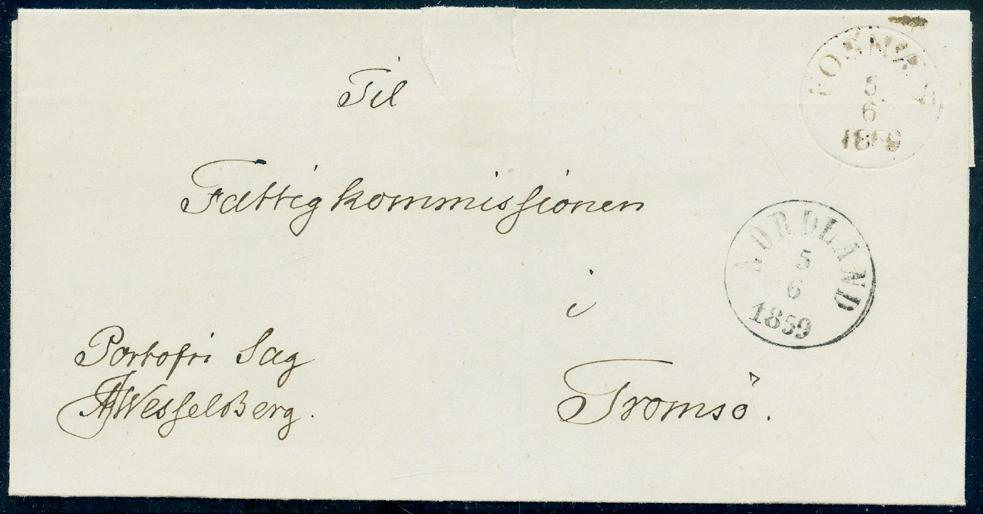 Til
Fattigkommissionen
i
Tromsö.
Portofri Sag
Wesselberg.
5
6
1859
NORDLAND
5
6
1859